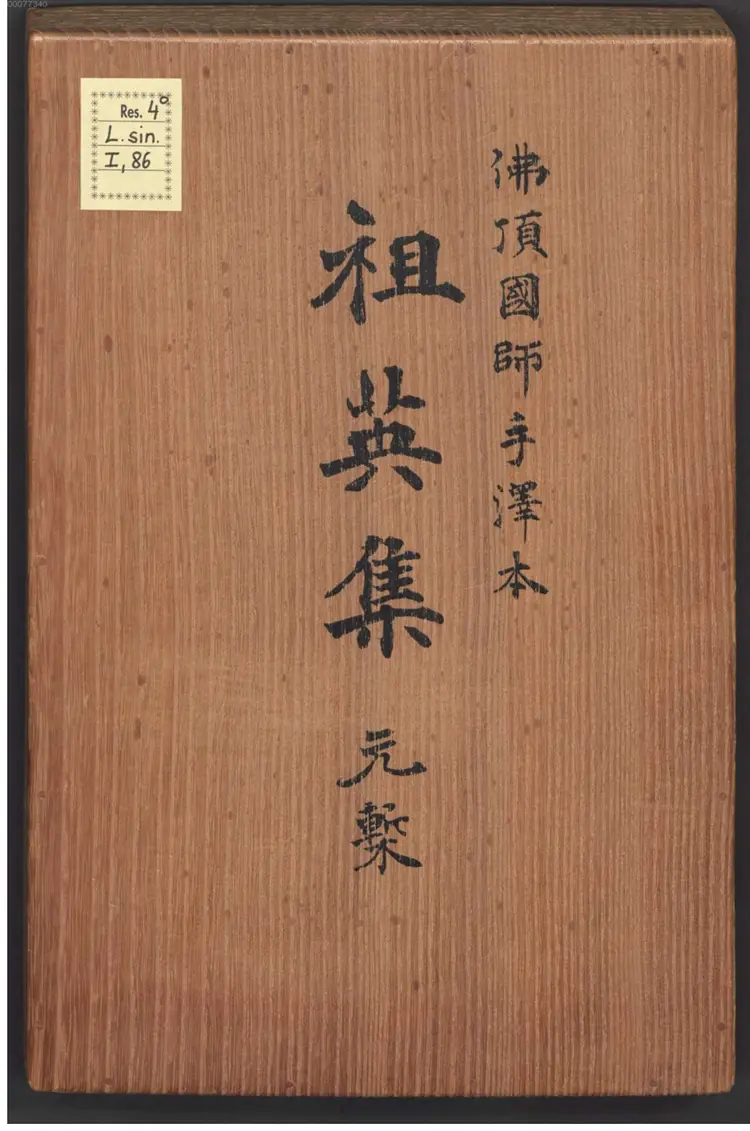 00077340
Res. 4°
L. sin.
I, 86
佛頂國師手澤本
祖英集 元槧